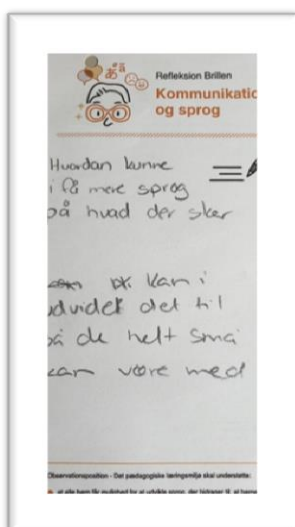 Refleksion Brillen
Kommunikatio
og sprog
Hvordan kunne
i få mere sprog
på hvad der sker
kan i
udvidet det til
så de helt små
kan være med
Observationsposition - Det pædagogiske læringsmiljø skal understøtte:
at alle børn får mulighed for at udvikle sprog, der bidrager til, at børne